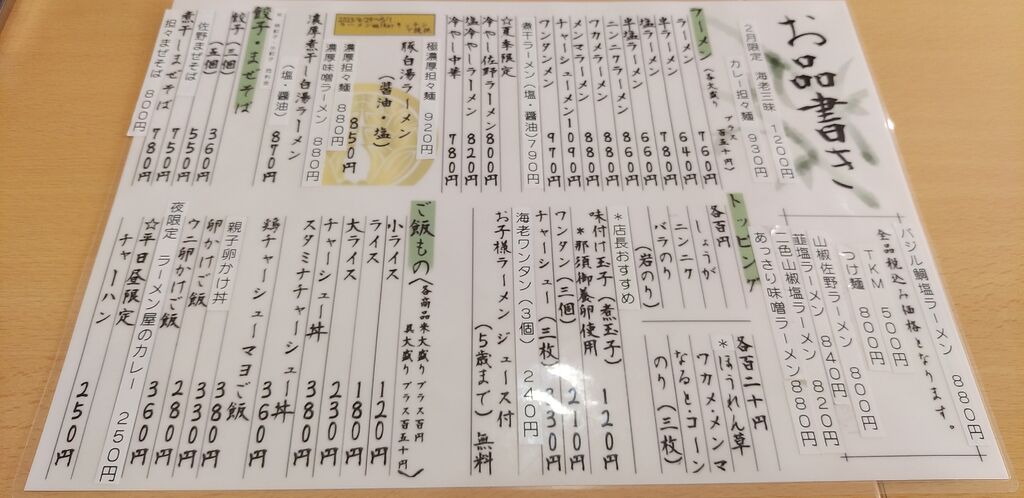 お品書き
2月限定 海老三昧 1200円
カレー担々麺 930円
ラーメン(各大盛り プラス百五十円)
ラーメン 760円
半ラーメン 640円
塩ラーメン 780円
半塩ラーメン 660円
ニンニクラーメン 860円
ワカメラーメン 880円
メンマラーメン 880円
チャーシューメン 1090円
ワンタンメン 970円
煮干ラーメン(塩・醤油) 790円
☆夏季限定
冷やし佐野ラーメン 800円
塩冷やしラーメン 820円
冷やし中華 780円
極濃厚担々麺 920円
豚白湯ラーメン
(醤油・塩)
850円
濃厚担々麺 880円
濃厚味噌ラーメン 880円
濃厚煮干し白湯ラーメン
(塩・醤油) 870円
餃子・まぜそば
餃子(三個)
(五個) 360円
佐野まぜそば 550円
煮干しまぜそば 750円
担々まぜそば 780円
800円
バジル鯛塩ラーメン 880円
全品税込み価格となります。
TKM 500円
つけ麺 800円
佐野ラーメン 800円
山椒佐野ラーメン 820円
韮塩ラーメン 840円
二色山椒塩ラーメン 880円
あっさり味噌ラーメン 880円
トッピング
各百円
しょうが
ニンニク
バラのり
(岩のり)
各百二十円
*ほうれん草
ワカメ・メンマ
なると・コーン
のり(三枚)
*店長おすすめ
味付け玉子(煮玉子) 120円
*那須御養卵使用
ワンタン(三個) 210円
チャーシュー(三枚) 330円
海老ワンタン(3個) 240円
お子様ラーメン ジュース付
(5歳まで) 無料
ご飯もの(各商品米大盛り プラス百円
具大盛り プラス百五十円)
小ライス 120円
ライス 180円
大ライス 230円
チャーシュー丼 380円
スタミナチャーシュー丼
鶏チャーシューマヨご飯 360円
親子卵かけ丼 330円
卵かけご飯 380円
ウニ卵かけご飯 280円
夜限定 ラーメン屋のカレー 250円
☆平日昼限定 360円
チャーハン 250円